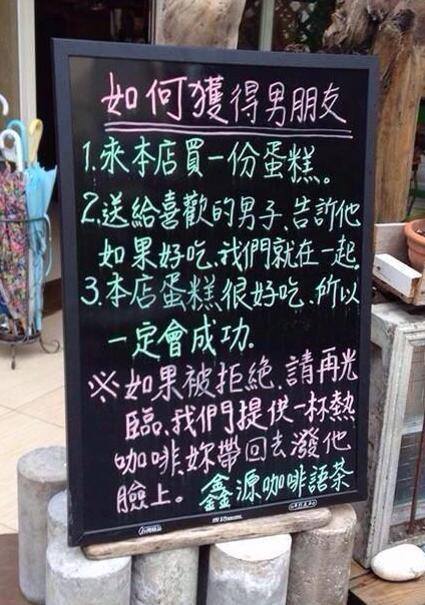 如何獲得男朋友
1.來本店買一份蛋糕。
2.送給喜歡的男子、告訴他
如果好吃、我們就在一起.
3.本店蛋糕很好吃、所以
一定會成功.
※如果被拒絕、請再光
臨、我們提供一杯熱
咖啡、妳帶回去潑他
臉上。鑫源咖啡語茶